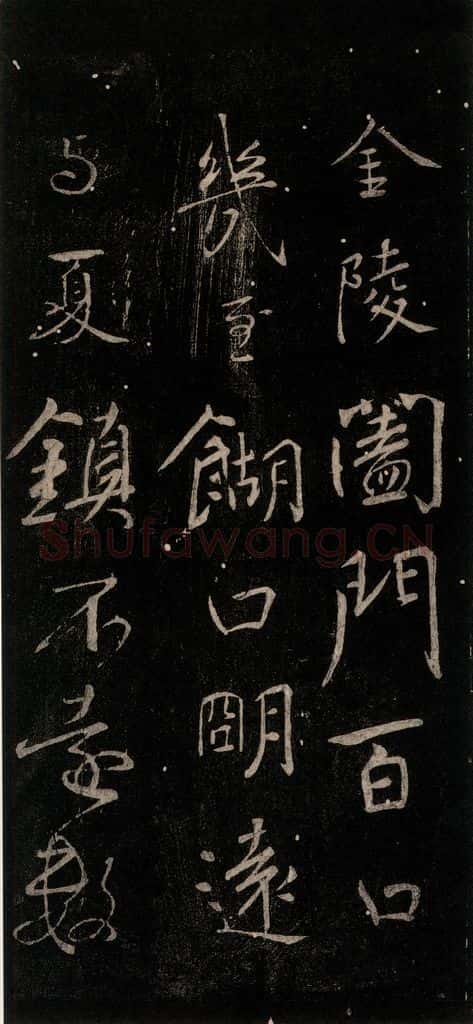 金陵闔門百口
幾至餬口朙遠
与夏鎮不遠數
Shufawang.CN